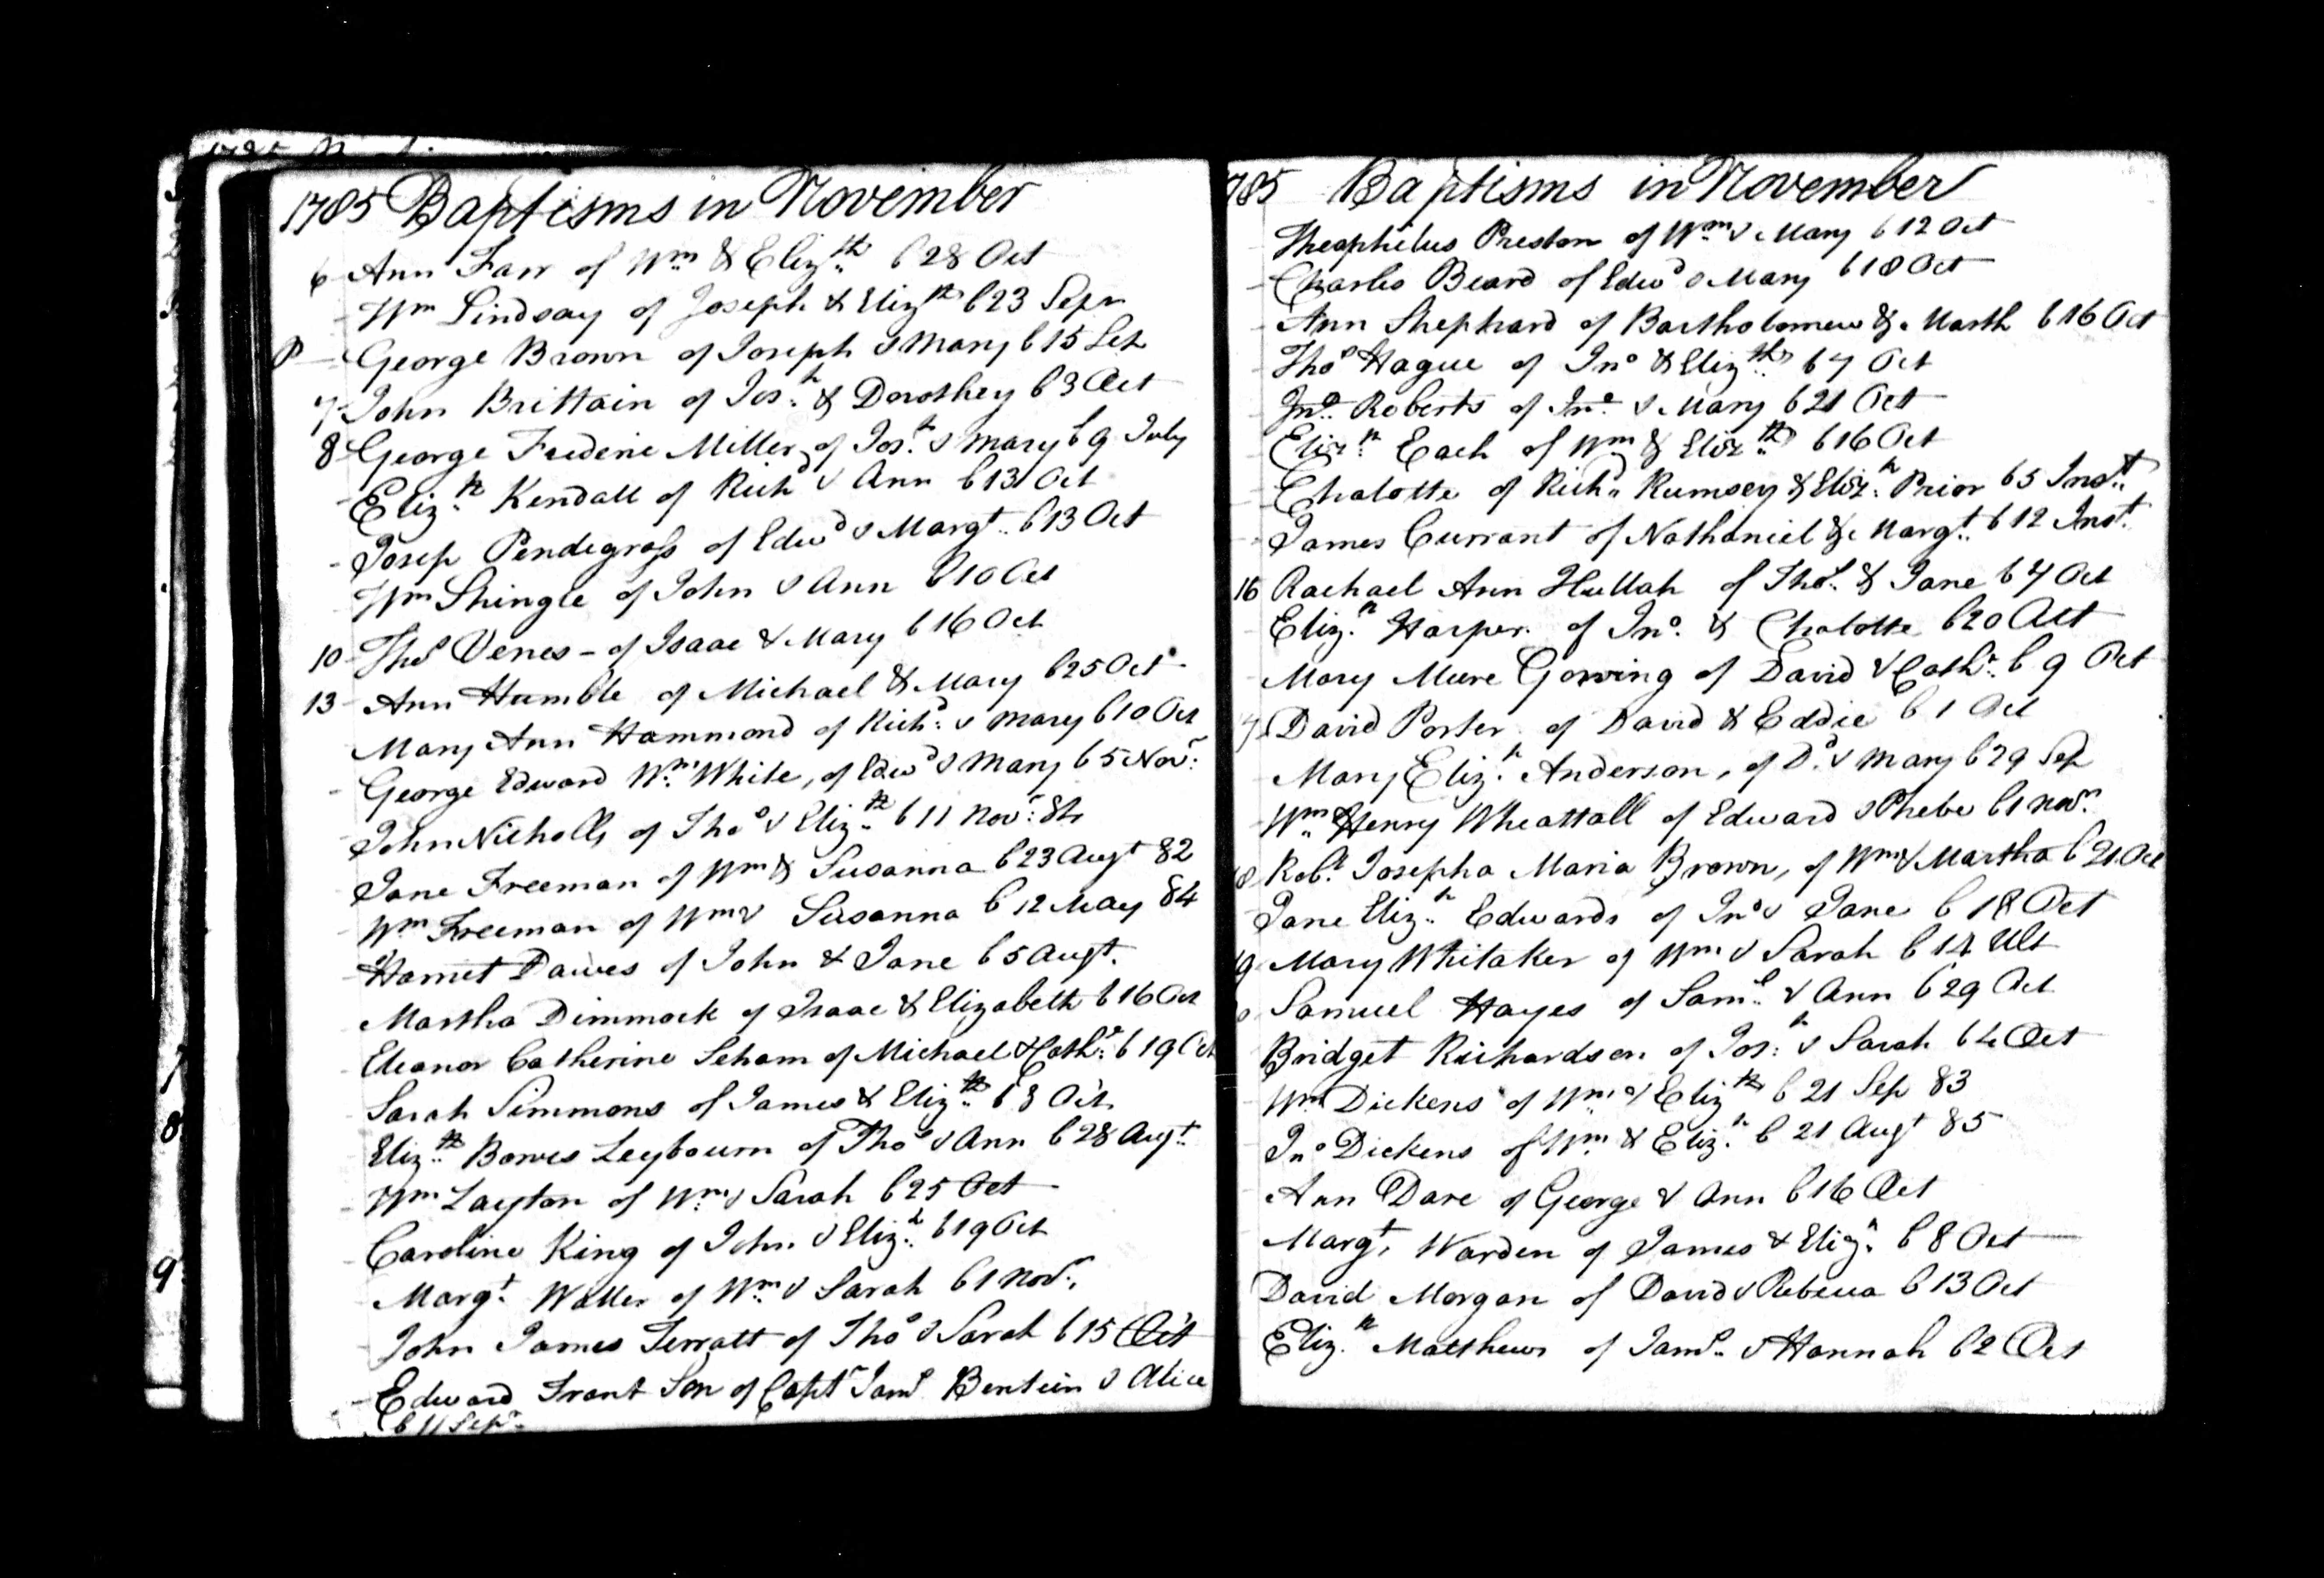 1785 Baptisms in November
6 Ann Farr of Wm & Elizth b 28 Oct
- Wm Lindsay of Joseph & Elizth b 23 Sepr
P - George Brown of Joseph & Mary b 15
7 John Brittain of Josh & Dorothey b 3 Oct
8 George Frederic Miller of Josh & Mary b 9 July
- Elizh Kendall of Richd & Ann b 13 Oct
- Josep Pendegrass of Edwd & Margt b 13 Oct
- Wm Shingle of John & Ann b 10 Oct
10 Thos Venes - of Isaac & Mary b 16 Oct
13 Ann Humble of Michael & Mary b 25 Oct
Mary Ann Hammond of Richd & Mary b 10 Oct
- George Edward Wm White, of Edwd & Mary b 5 Novr
John Nicholls of Thos & Elizth b 11 Novr 84
Jane Freeman of Wm & Susanna b 23 Augt 82
Wm Freeman of Wm & Susanna b 12 May 84
- Hamet Dawes of John & Jane b 5 Augt.
- Martha Dimmock of Isaac & Elizabeth b 16 Oct
- Eleanor Catherine Seham of Michael & Cathe b 19 Oct
- Sarah Simmons of James & Elizth b 8 Oct
- Elizth Bowes Leybourn of Thos & Ann b 28 Augt
- Wm Layton of Wm & Sarah b 25 Oct
- Caroline King of John & Elizh b 19 Oct
- Margt Waller of Wm & Sarah b 1 Novr
- John James Terratt of Thos & Sarah b 15 Oct
- Edward Frant Son of Captn Jams Bentein & Alice
b 11 Sepr
785 Baptisms in November
Theophilus Preston of Wm & Mary b 12 Oct
- Charles Beard of Edwd & Mary b 18 Oct
- Ann Shephard of Bartholomew & Marth b 16 Oct
- Thos Hague of Jno & Elizth b 7 Oct
- Jno Roberts of Jno & Mary b 21 Oct
- Elizh Each of Wm & Elizth b 16 Oct
- Chalotte of Richd Rumsey & Elizh Prior b 5 Inst
- James Currant of Nathaniel & Margt b 12 Inst
16 Rachael Ann Hullah of Thos & Jane b 7 Oct
- Elizh Harper of Jno & Chalotte b 20 Oct
- Mary Meere Gowing of David & Cathe b 9 Oct
7 David Porter of David & Eddie b 1 Oct
Mary Elizh Anderson, of Dd & Mary b 29 Sep
- Wm Henry Wheattall of Edward & Phebe b 1 Novr
8 Robt Josepha Maria Brown, of Wm & Martha b 21 Oct
- Jane Elizh Edwards of Jno & Jane b 18 Oct
19 Mary Whitaker of Wm & Sarah b 14 Ult
0 Samuel Hayes of Saml & Ann b 29 Oct
Bridget Richardson of Josh & Sarah b 4 Oct
- Wm Dickens of Wm & Elizth b 21 Sep 83
- Jno Dickens of Wm & Elizh b 21 Augt 85
- Ann Dare of George & Ann b 16 Oct
- Margt Warden of James & Elizh b 8 Oct
David Morgan of David & Rebecca b 13 Oct
Elizh Matthews of Jams & Hannah b 2 Oct
7
8
9